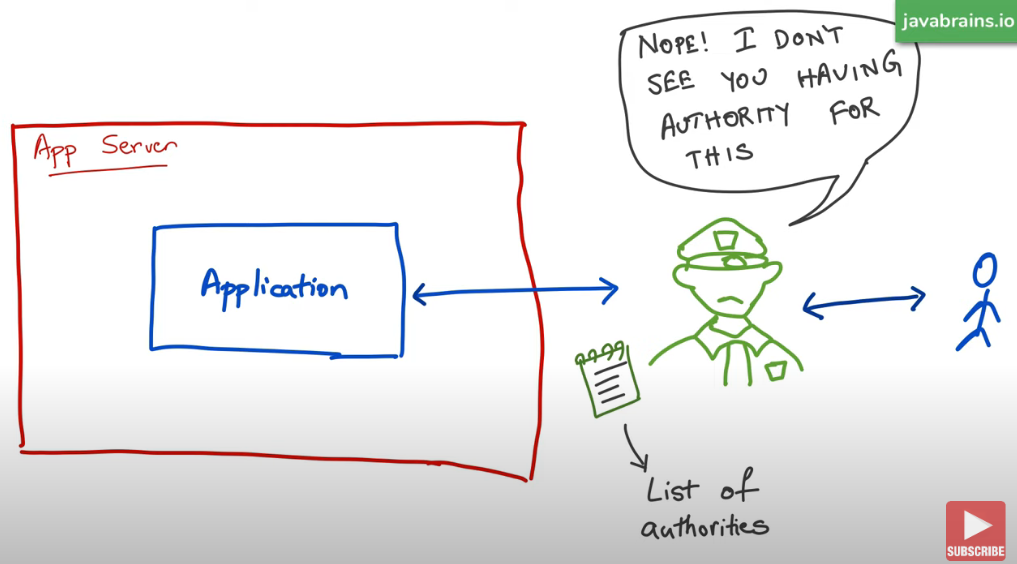 javabrains.io
NOPE! I DON'T
SEE YOU HAVING
AUTHORITY FOR
THIS
App Server
Application
List of
authorities
SUBSCRIBE